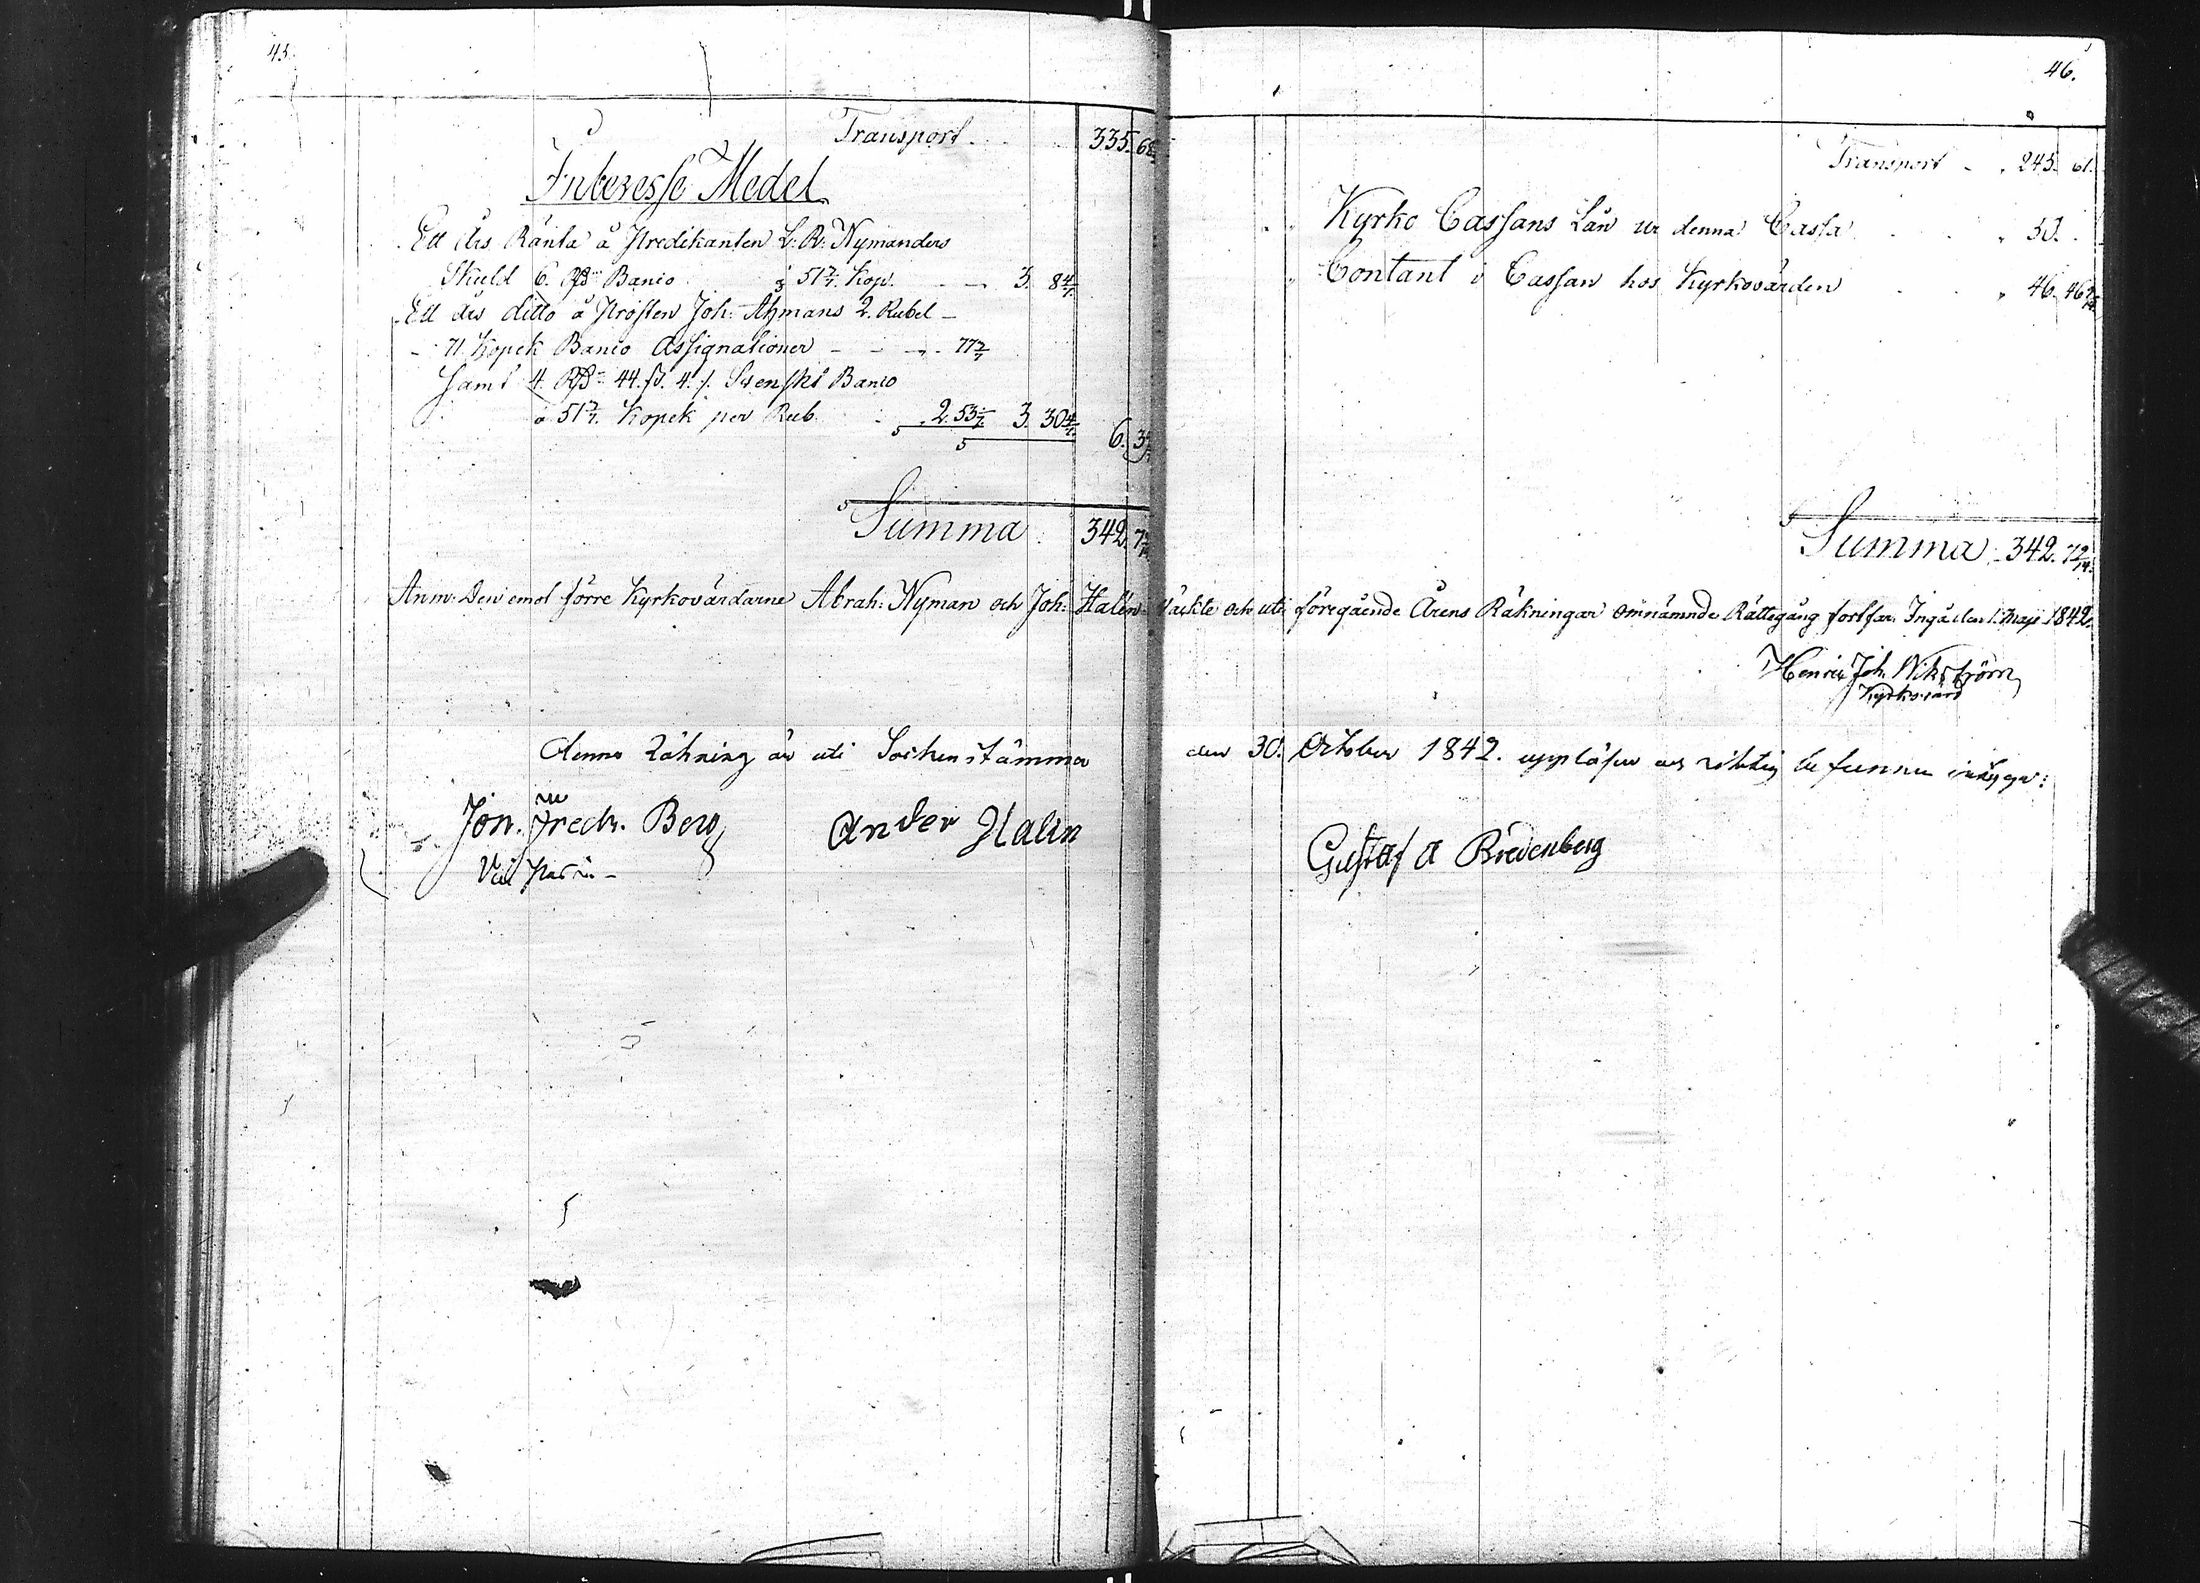 45.
Transport 335. 68
Interesse Medel
Ett års Ränta å Predikanten L: R: Nymanders
Skuld 6. Rß Banco å 51 3/7. Kop. 3. 8 4/7.
Ett års ditto å Prosten Joh: Ahmans 2. Rubel
71 Kopek Banco Assignationer 77 3/7
Samt 4. Rß 44. ß. 4. Svenskt Banco
å 51 3/7. Kopek per Rub. 2. 53 3. 30 4/7. 6.
Summa 342.
Anm: Den emot förre Kyrkovärdarne Abrah: Nyman och Joh: Halin väckte och uti föregående Årens Räkningar omnämnde Rättegång fortfar. Ingå den 1. Maji 1842.
Denne Räkning är uti Sockenstämma den 30. October 1842. uppläsen och riktig befunnen intygar:
Jon. Fredr. Berg
Ander Halin
46.
Transport 245. 61.
Kyrko Cassans Lån ur denna Cassa 50.
Contant i Cassan hos Kyrkovärden 46. 46
Summa 342. 7
Henric Joh. Wikström
Kyrkovärd
Gustaf A Bredenberg